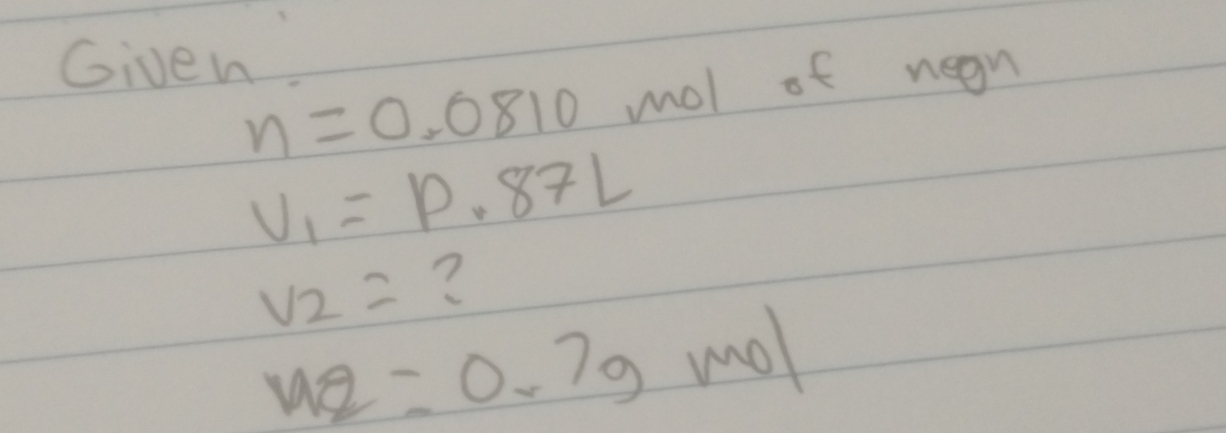 Given:
n = 0.0810 mol of neon
V1 = 0.87L
V2 = ?
n2 = 0.79 mol